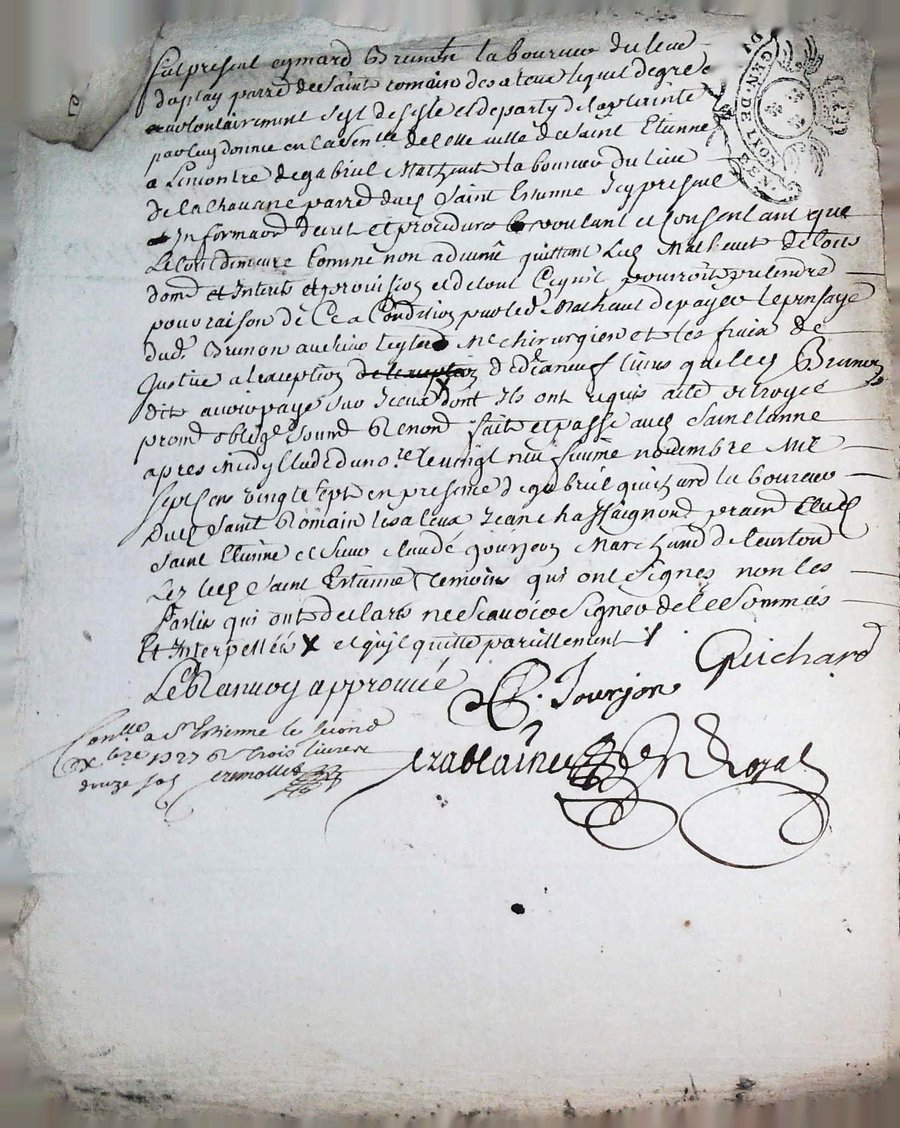 fut present eymard Brunon laboureur du lieu
duplay parre de Saint romain des ateux lequel de gre
volontairement sest desiste et departy de la plainte
par luy donnée en la senlle de cette ville de Saint Etienne
a Lencontre de gabriel Matheut laboureur du lieu
de la chavane parre dud Saint Estienne Icy present
Informaon decret et procedure voulant et consentant que
Le tout demeure comme non advenu quittant Led Matheut de tous
dome et Interets et provision et de tout Ce quil pourroit pretendre
pour raison de Ce a Condition par led Mathaut de payer le pensage
dud. Brunon au sieur Me chirurgien et les fraix de
Justice a lexception de dixneuf livres que led Brunon
dit avoir payé sur Iceux dont Ils ont requis acte octroyé
prome oblige soume Renon fait et passé aud Saint
apres midy Etude du nore le vingt neufieme novembre mil
sept cen vingt sept en presence de gabriel guichard laboureur
dud Saint Romain les ateux Jean chassaignond praen dud
Saint Etienne et sieur claude Jourjon Marchand
Saint Estienne temoins qui ont signes non les
Partie qui ont declaré ne scavoir signer de ce Sommés
Et Interpellés X et quil quitte pareillement
Le Ranvoy approuvé
Guichard
C. Jourjon
Conllé a St Estienne le second
xbre 1727 R trois livres
douze sols
Nre Royal
GEN. DE LYON